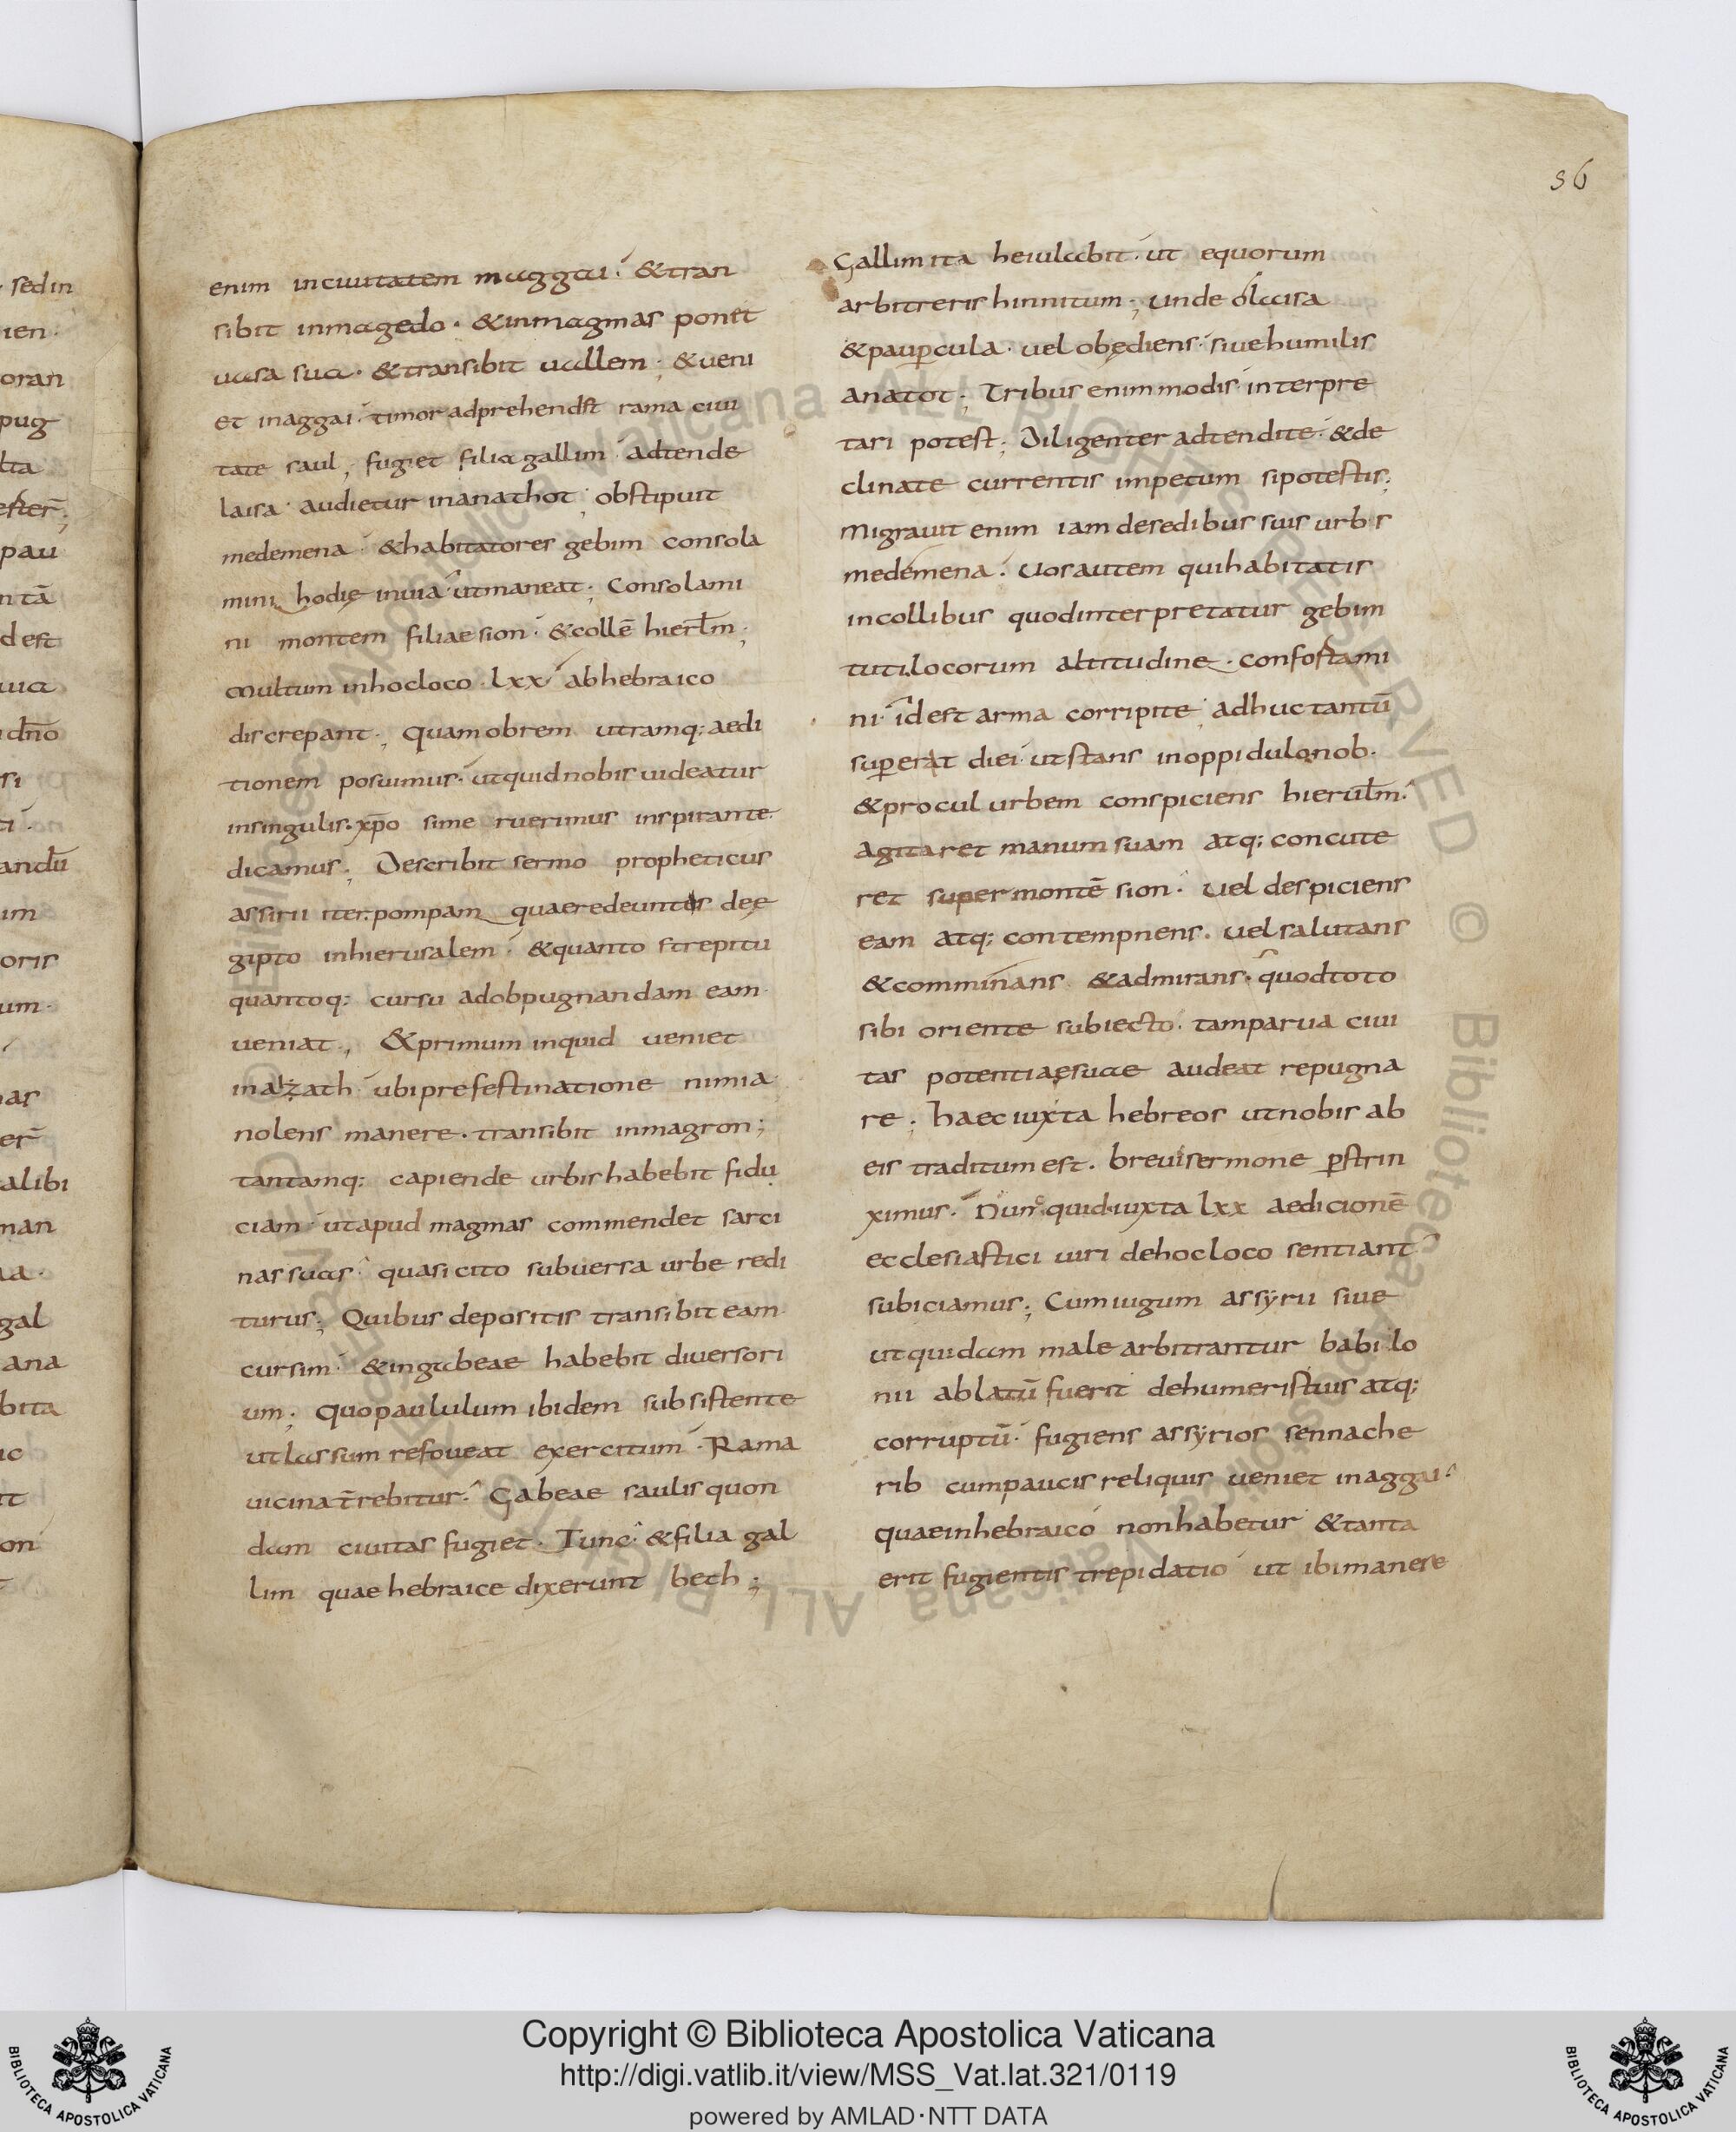 36
enim inciuitatem maggai. &tran
sibit inmagedo. &inmagmas ponet
uasa sua. &transibit uallem; &ueni
et inaggai. timor adprehendet rama ciui
tate saul; fugiet filia gallim adtende
laisa. audietur inanathot; obstipuit
medemena. &habitatores gebim consola
mini hodie inuia utmaneat; Consolami
ni montem filiae sion. &collē hierl̄m;
Multum inhocloco lxx abhebraico
discrepant; Quamobrem utramq; aedi
tionem posuimus. utquidnobis uideatur
insingulis. xp̄o sime ruerimus inspirante.
dicamus; Describit sermo propheticus
assirii iter. pompam quaeredeuntes deę
gipto inhierusalem. &quanto strepitu
quantoq; cursu adobpugnandam eam.
ueniat; &primum inquid ueniet
inaizath ubi prefestinatione nimia
nolens manere. transibit inmagron;
tantamq; capiende urbis habebit fidu
ciam utapud magmas commendet sarci
nas suas. quasi cito subuersa urbe redi
turus; Quibus depositis transibit eam
cursim. &ingabeae habebit diuersori
um; Quopaululum ibidem subsistente
ut lassum refoueat exercitum. Rama
uicina t̄rebitur. Gabeae saulis quon
dam ciuitas fugiet. Tunc &filia gal
lim quae hebraice dixerunt beth;
Gallim ita heiulabit. ut equorum
arbitreris hinnitum; unde o laisa
&paup̄cula. uel obędiens. siue humilis
anatot; Tribus enim modis interpre
tari potest; Diligenter adtendite. &de
clinate currentis impetum sipotestis;
Migrauit enim iam desedibus suis urbs
medemena. Uos autem qui habitatis
incollibus quodinterpretatur gebim
tuti locorum altitudine. confortami
ni. idest arma corripite adhuc tantū
superat diei. ut stans inoppidulo nob.
&procul urbem conspiciens hierul̄m.
agitaret manum suam atq; concute
ret super montē sion. uel despiciens
eam atq; contempnens. uel salutans
&comminans &admirans. quodtoto
sibi oriente subiecto. tamparua ciui
tas potentiaesuae audeat repugna
re; haec iuxta hebreos utnobis ab
eis traditum est. breui sermone p̄strin
ximus. Nunc quid iuxta lxx aedicionē
ecclesiastici uiri dehocloco sentiant
subiciamus; Cum iugum assÿrii siue
utquidam male arbitrantur babilo
nii ablatū fuerit dehumeris tuis atq;
corruptū. fugiens assÿrios sennache
rib cumpaucis reliquis ueniet inaggai.
quaeinhebraico nonhabetur &tanta
erit fugientis trepidatio ut ibi manere
Copyright © Biblioteca Apostolica Vaticana
http://digi.vatlib.it/view/MSS_Vat.lat.321/0119
powered by AMLAD·NTT DATA
BIBLIOTECA APOSTOLICA VATICANA
BIBLIOTECA APOSTOLICA VATICANA